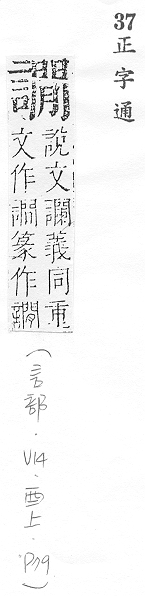 37
正字通
譋
說文讕義同重
文作譋篆作
(言部·V14·酉上·P79)